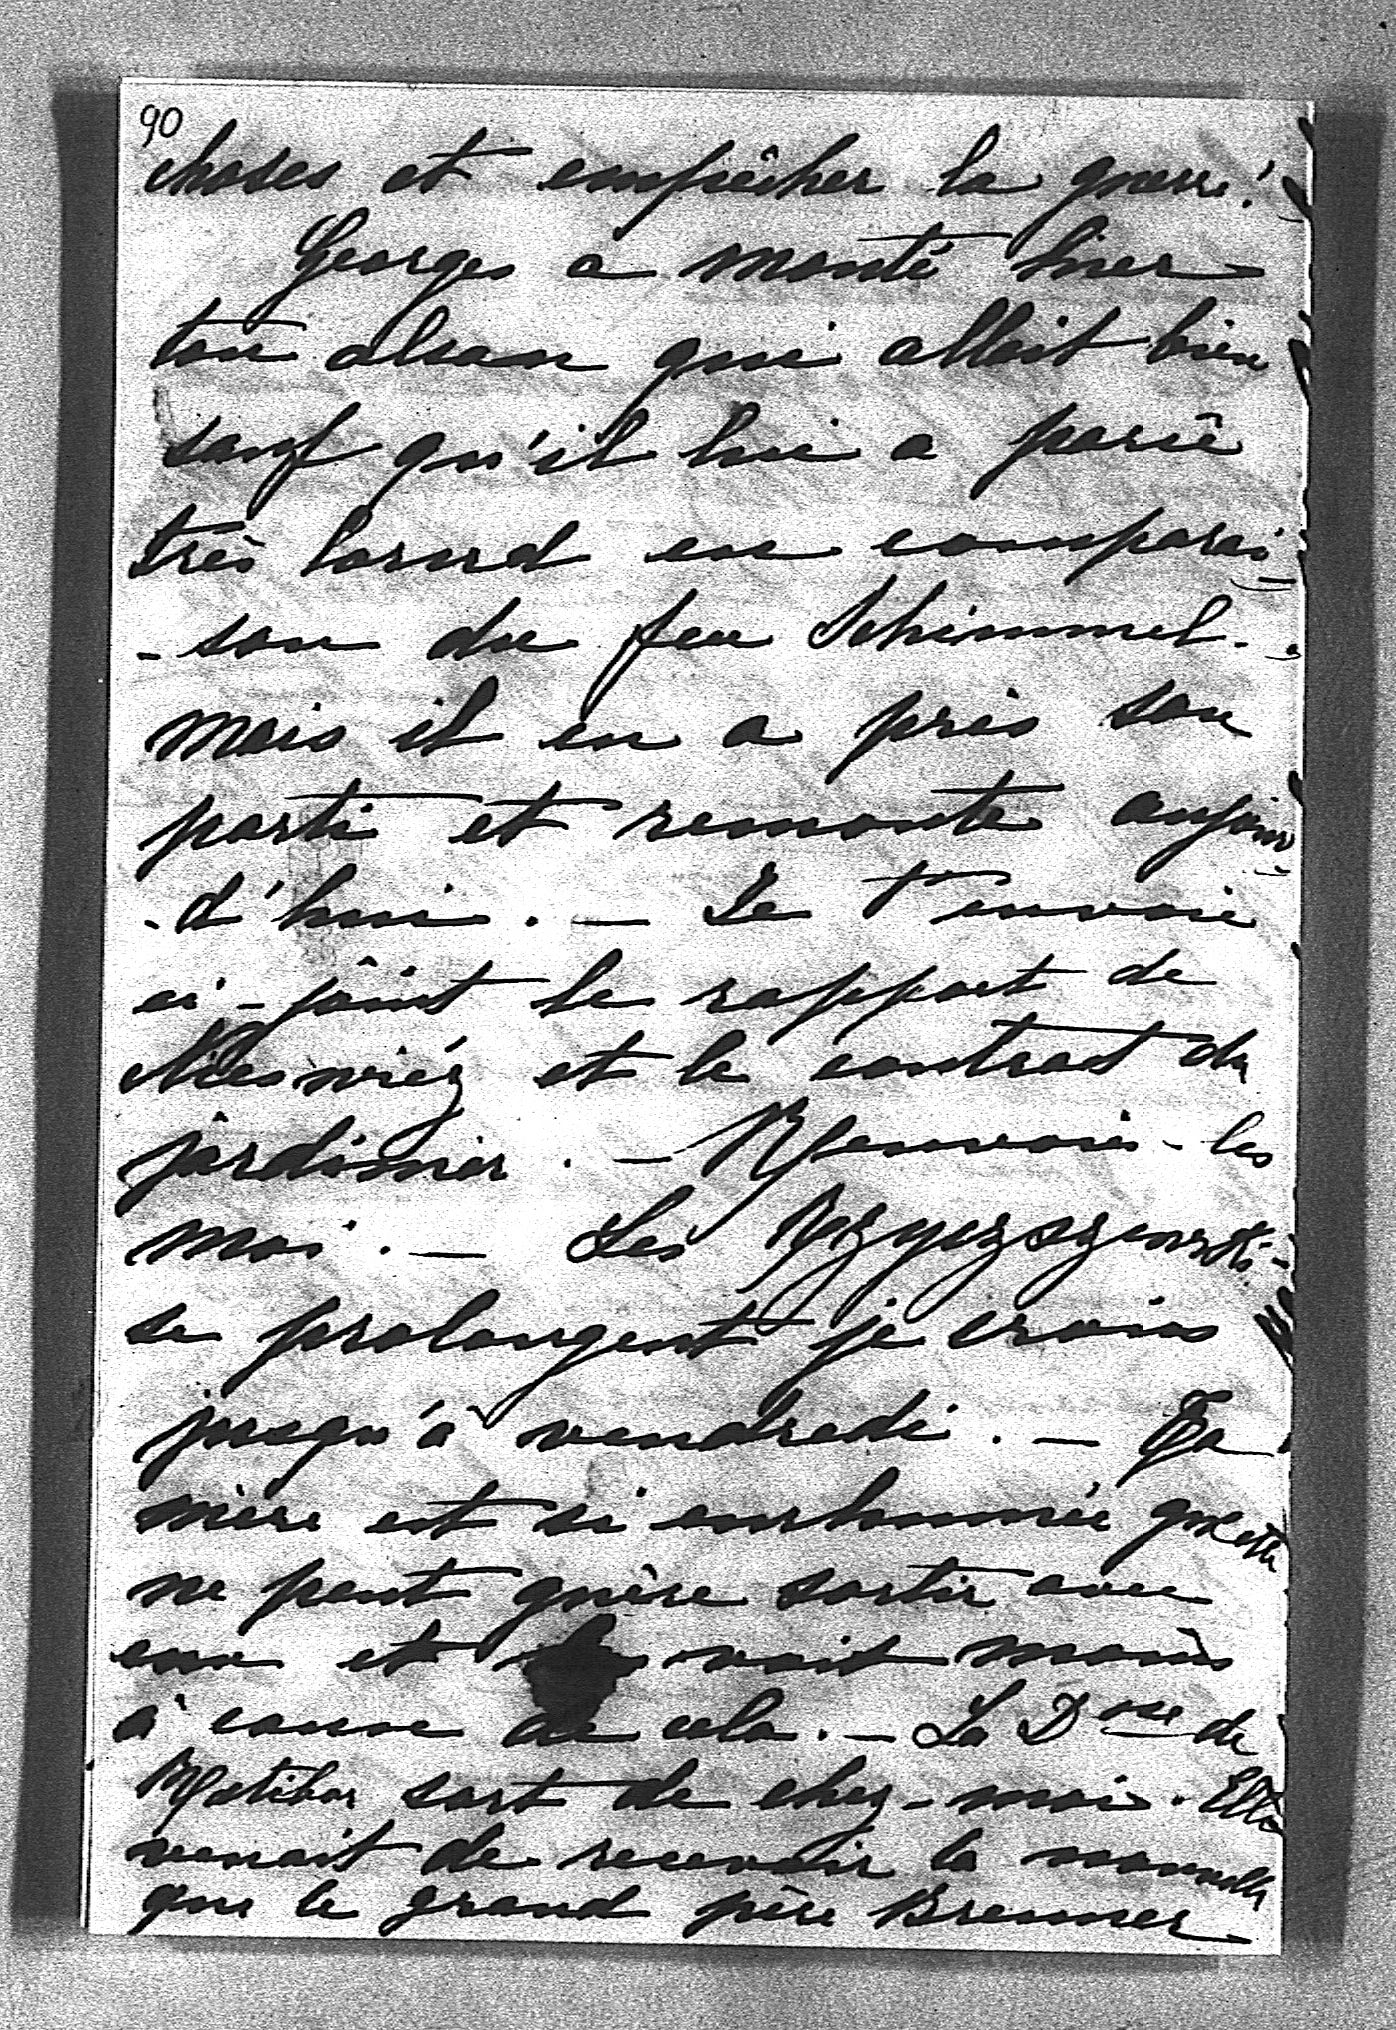 90
choses et empêcher la guerre!
Georges a monté hier
ton alsan qui allait bien
sauf qu'il lui a parû
très lourd en comparai-
- son du feu Schimmel.
mais il en a pris son
parti et remonte aujour
- d'hui. — Je t'envoie
ci-joint le rapport de
Nieswiéz et le contrat du
jardinier. — Renvoie-les
moi. — Les
se prolongent je crains
jusqu'à vendredi. — Ta
mère est si enrhumée qu'elle
ne peut guère sortir avec
eux et les voit moins
à cause de cela. — La Dsse de
Ratibor sort de chez-moi. Elle
venait de recevoir la nouvelle
que le grand père Brenner